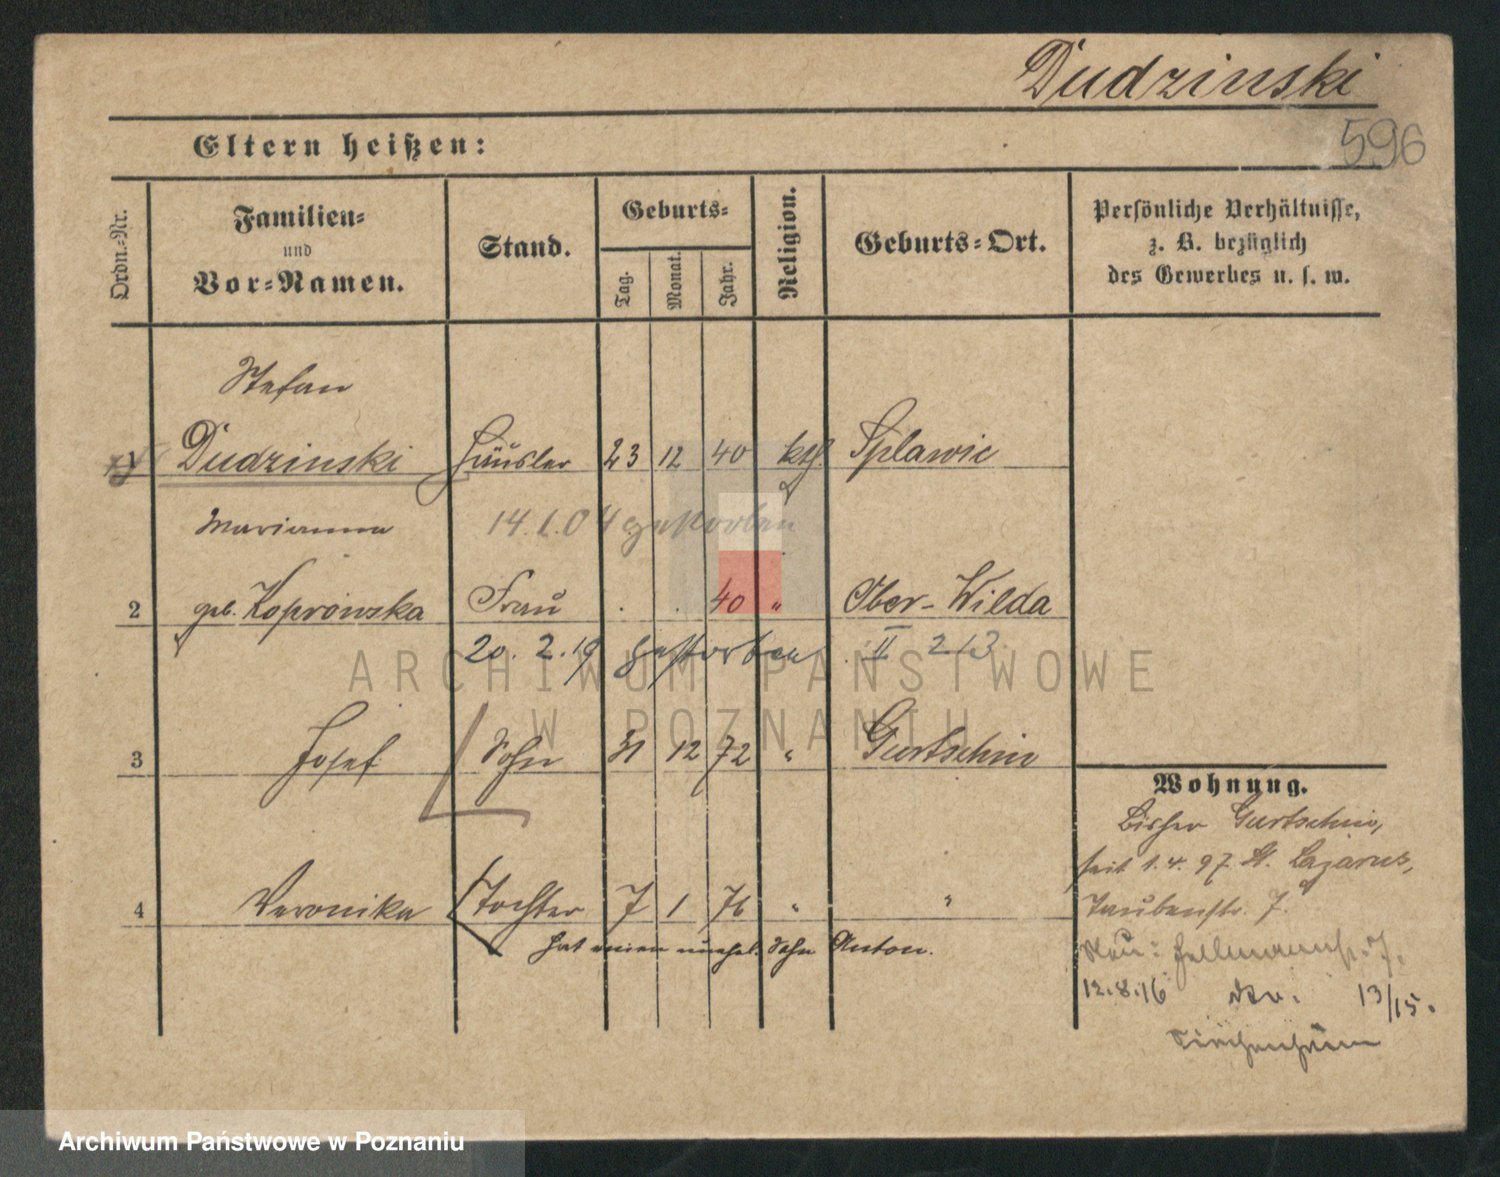 Dudzinski
596
Eltern heißen:
Ordn.-Nr.
Familien-
und
Vor-Namen.
Stand.
Geburts-
Tag.
Monat.
Jahr.
Religion.
Geburts-Ort.
Persönliche Verhältnisse,
z. B. bezüglich
des Gewerbes u. s. w.
Stefan
1 Dudzinski Häusler 23 12 40 kth. Splawie
Marianna 14.1.04 gestorben
2 geb. Koprowska Frau . . 40 " Ober-Wilda
20.2.19 gestorben II 213
3 Josef Sohn 31 12 72 " Gurtschin
4 Veronika Tochter 7 1 76 " "
hat einen unehel. Sohn Anton.
Wohnung.
Bisher Gurtschin,
seit 1.4.97 St. Lazarus,
Taubenstr. 7.
Neu: Hellmannstr. 7.
12.8.16 13/15.
ARCHIWUM PAŃSTWOWE
W POZNANIU
Archiwum Państwowe w Poznaniu